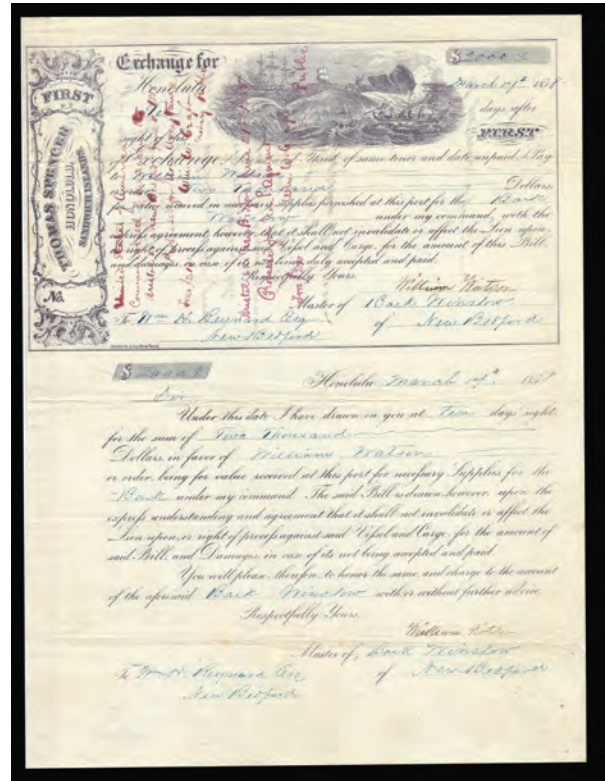 FIRST
THOMAS SPENCER
HONOLULU,
SANDWICH ISLANDS.
No.
Exchange for
$2000
Honolulu March 17th 18
days after
sight of this FIRST
of Exchange, Second and Third, of same tenor and date unpaid, Pay
to William Watson
or order, Two Thousand Dollars
for value received in necessary supplies furnished at this port for the Bark
Winslow under my command, with the
express agreement, however, that it shall not invalidate or affect the Lien upon,
or right of process against said Vessel and Cargo, for the amount of this Bill,
and damages in case of its not being duly accepted and paid.
Respectfully Yours,
William Watson
Master of Bark Winslow
To Wm. H. Reynard Esq of New Bedford
New Bedford
$2000
Honolulu March 17th 18
Sir
Under this date I have drawn on you at Ten days sight
for the sum of Two Thousand
Dollars, in favor of William Watson
or order, being for value received at this port for necessary Supplies for the
Bark under my command. The said Bill is drawn, however, upon the
express understanding and agreement that it shall not invalidate or affect the
Lien upon, or right of process against said Vessel and Cargo, for the amount of
said Bill, and Damages, in case of its not being accepted and paid.
You will please, therefore, to honor the same, and charge to the account
of the aforesaid Bark Winslow with or without further advice.
Respectfully Yours,
William Watson
Master of, Bark Winslow
To Wm. H. Reynard Esq of New Bedford
New Bedford